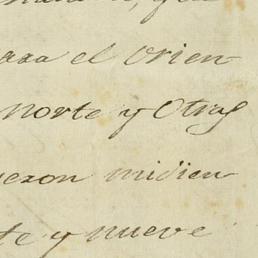 para el orien
norte y otras
ueron midien
te y nueve